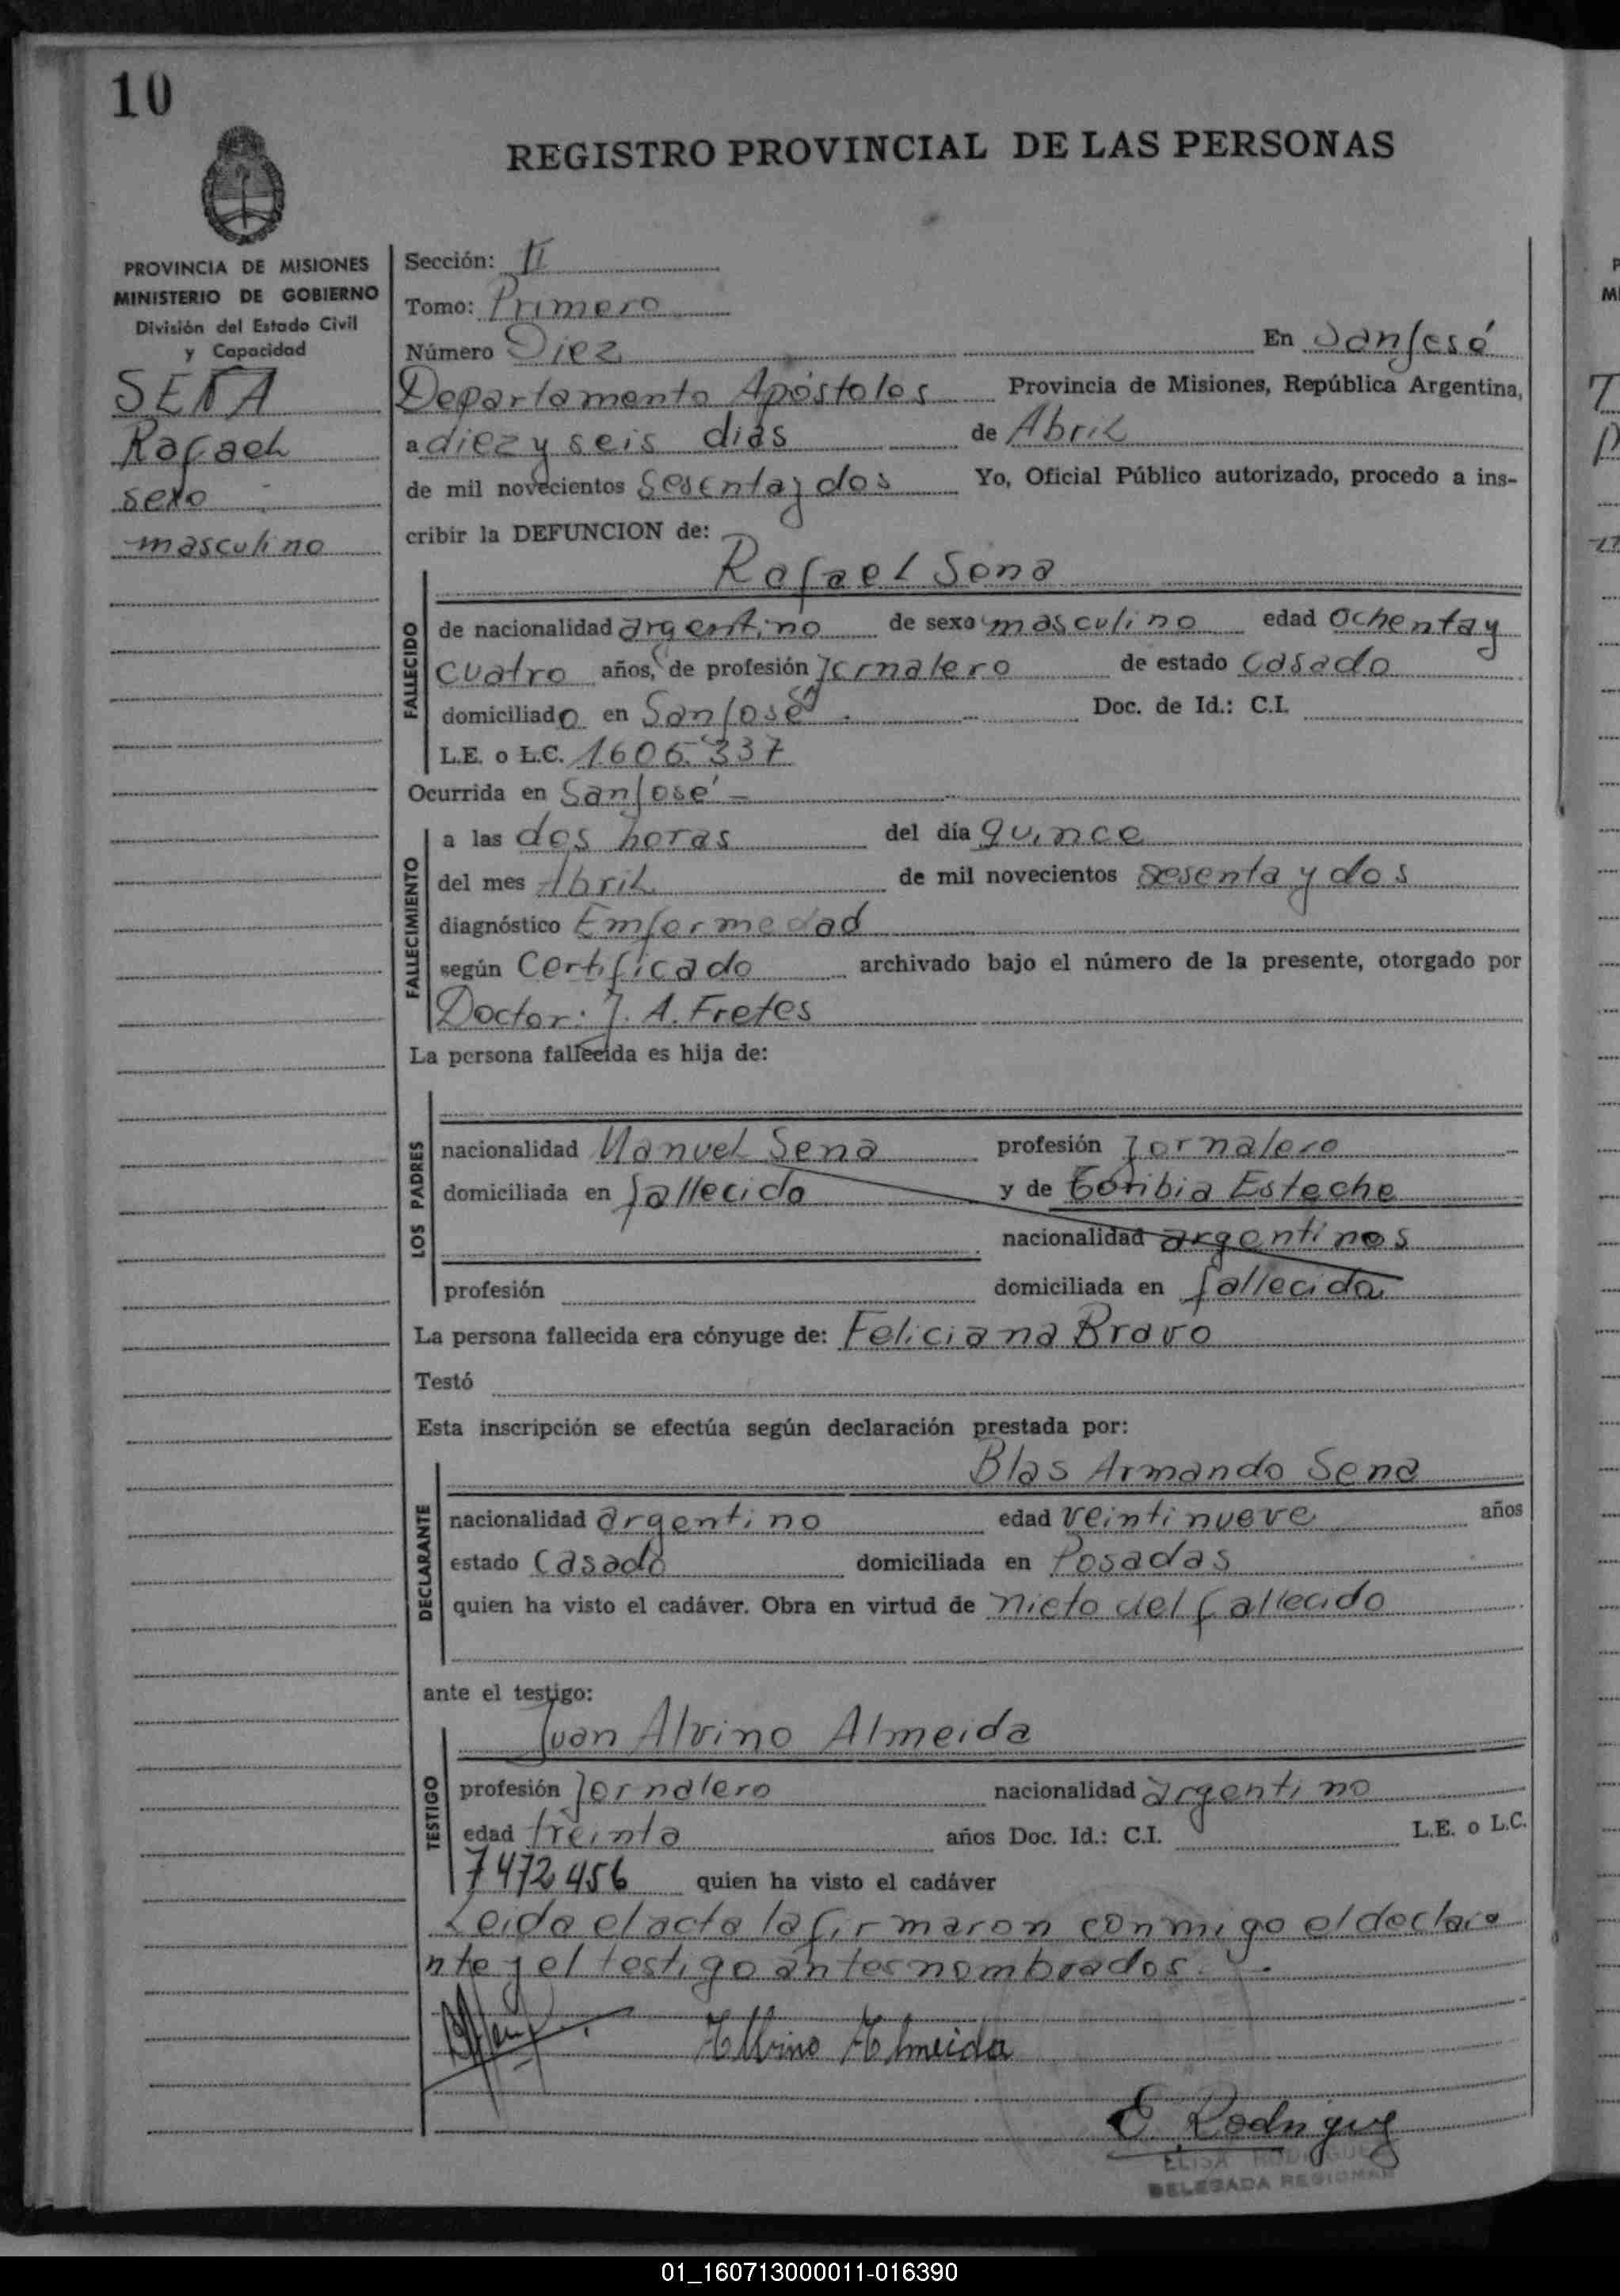 10
REGISTRO PROVINCIAL DE LAS PERSONAS
PROVINCIA DE MISIONES
MINISTERIO DE GOBIERNO
División del Estado Civil
y Capacidad
SENA
Rafael
sexo
masculino
Sección: II
Tomo: Primero
Número Diez En San José
Departamento Apóstoles Provincia de Misiones, República Argentina,
a diez y seis dias de Abril
de mil novecientos sesenta y dos Yo, Oficial Público autorizado, procedo a ins-
cribir la DEFUNCION de:
Rafael Sena
FALLECIDO
de nacionalidad argentino de sexo masculino edad ochenta y
cuatro años, de profesión Jornalero de estado casado
domiciliado en San José Doc. de Id.: C.I.
L.E. o L.C. 1.606.337
Ocurrida en San José -
FALLECIMIENTO
a las dos horas del día quince
del mes Abril de mil novecientos sesenta y dos
diagnóstico Emfermedad
según Certificado archivado bajo el número de la presente, otorgado por
Doctor: J. A. Fretes
La persona fallecida es hija de:
LOS PADRES
nacionalidad Manuel Sena profesión Jornalero
domiciliada en fallecido y de Toribia Esteche
nacionalidad argentinos
profesión domiciliada en fallecida
La persona fallecida era cónyuge de: Feliciana Bravo
Testó
Esta inscripción se efectúa según declaración prestada por:
Blas Armando Sena
DECLARANTE
nacionalidad argentino edad veintinueve años
estado casado domiciliada en Posadas
quien ha visto el cadáver. Obra en virtud de nieto del fallecido
ante el testigo:
Juan Alvino Almeida
TESTIGO
profesión Jornalero nacionalidad argentino
edad treinta años Doc. Id.: C.I. L.E. o L.C.
7472456 quien ha visto el cadáver
Leida el acta la firmaron conmigo el declara
nte y el testigo antes nombrados.
Alvino Almeida
E. Rodriguez
ELISA RODRIGUEZ
DELEGADA REGIONAL
01_160713000011-016390